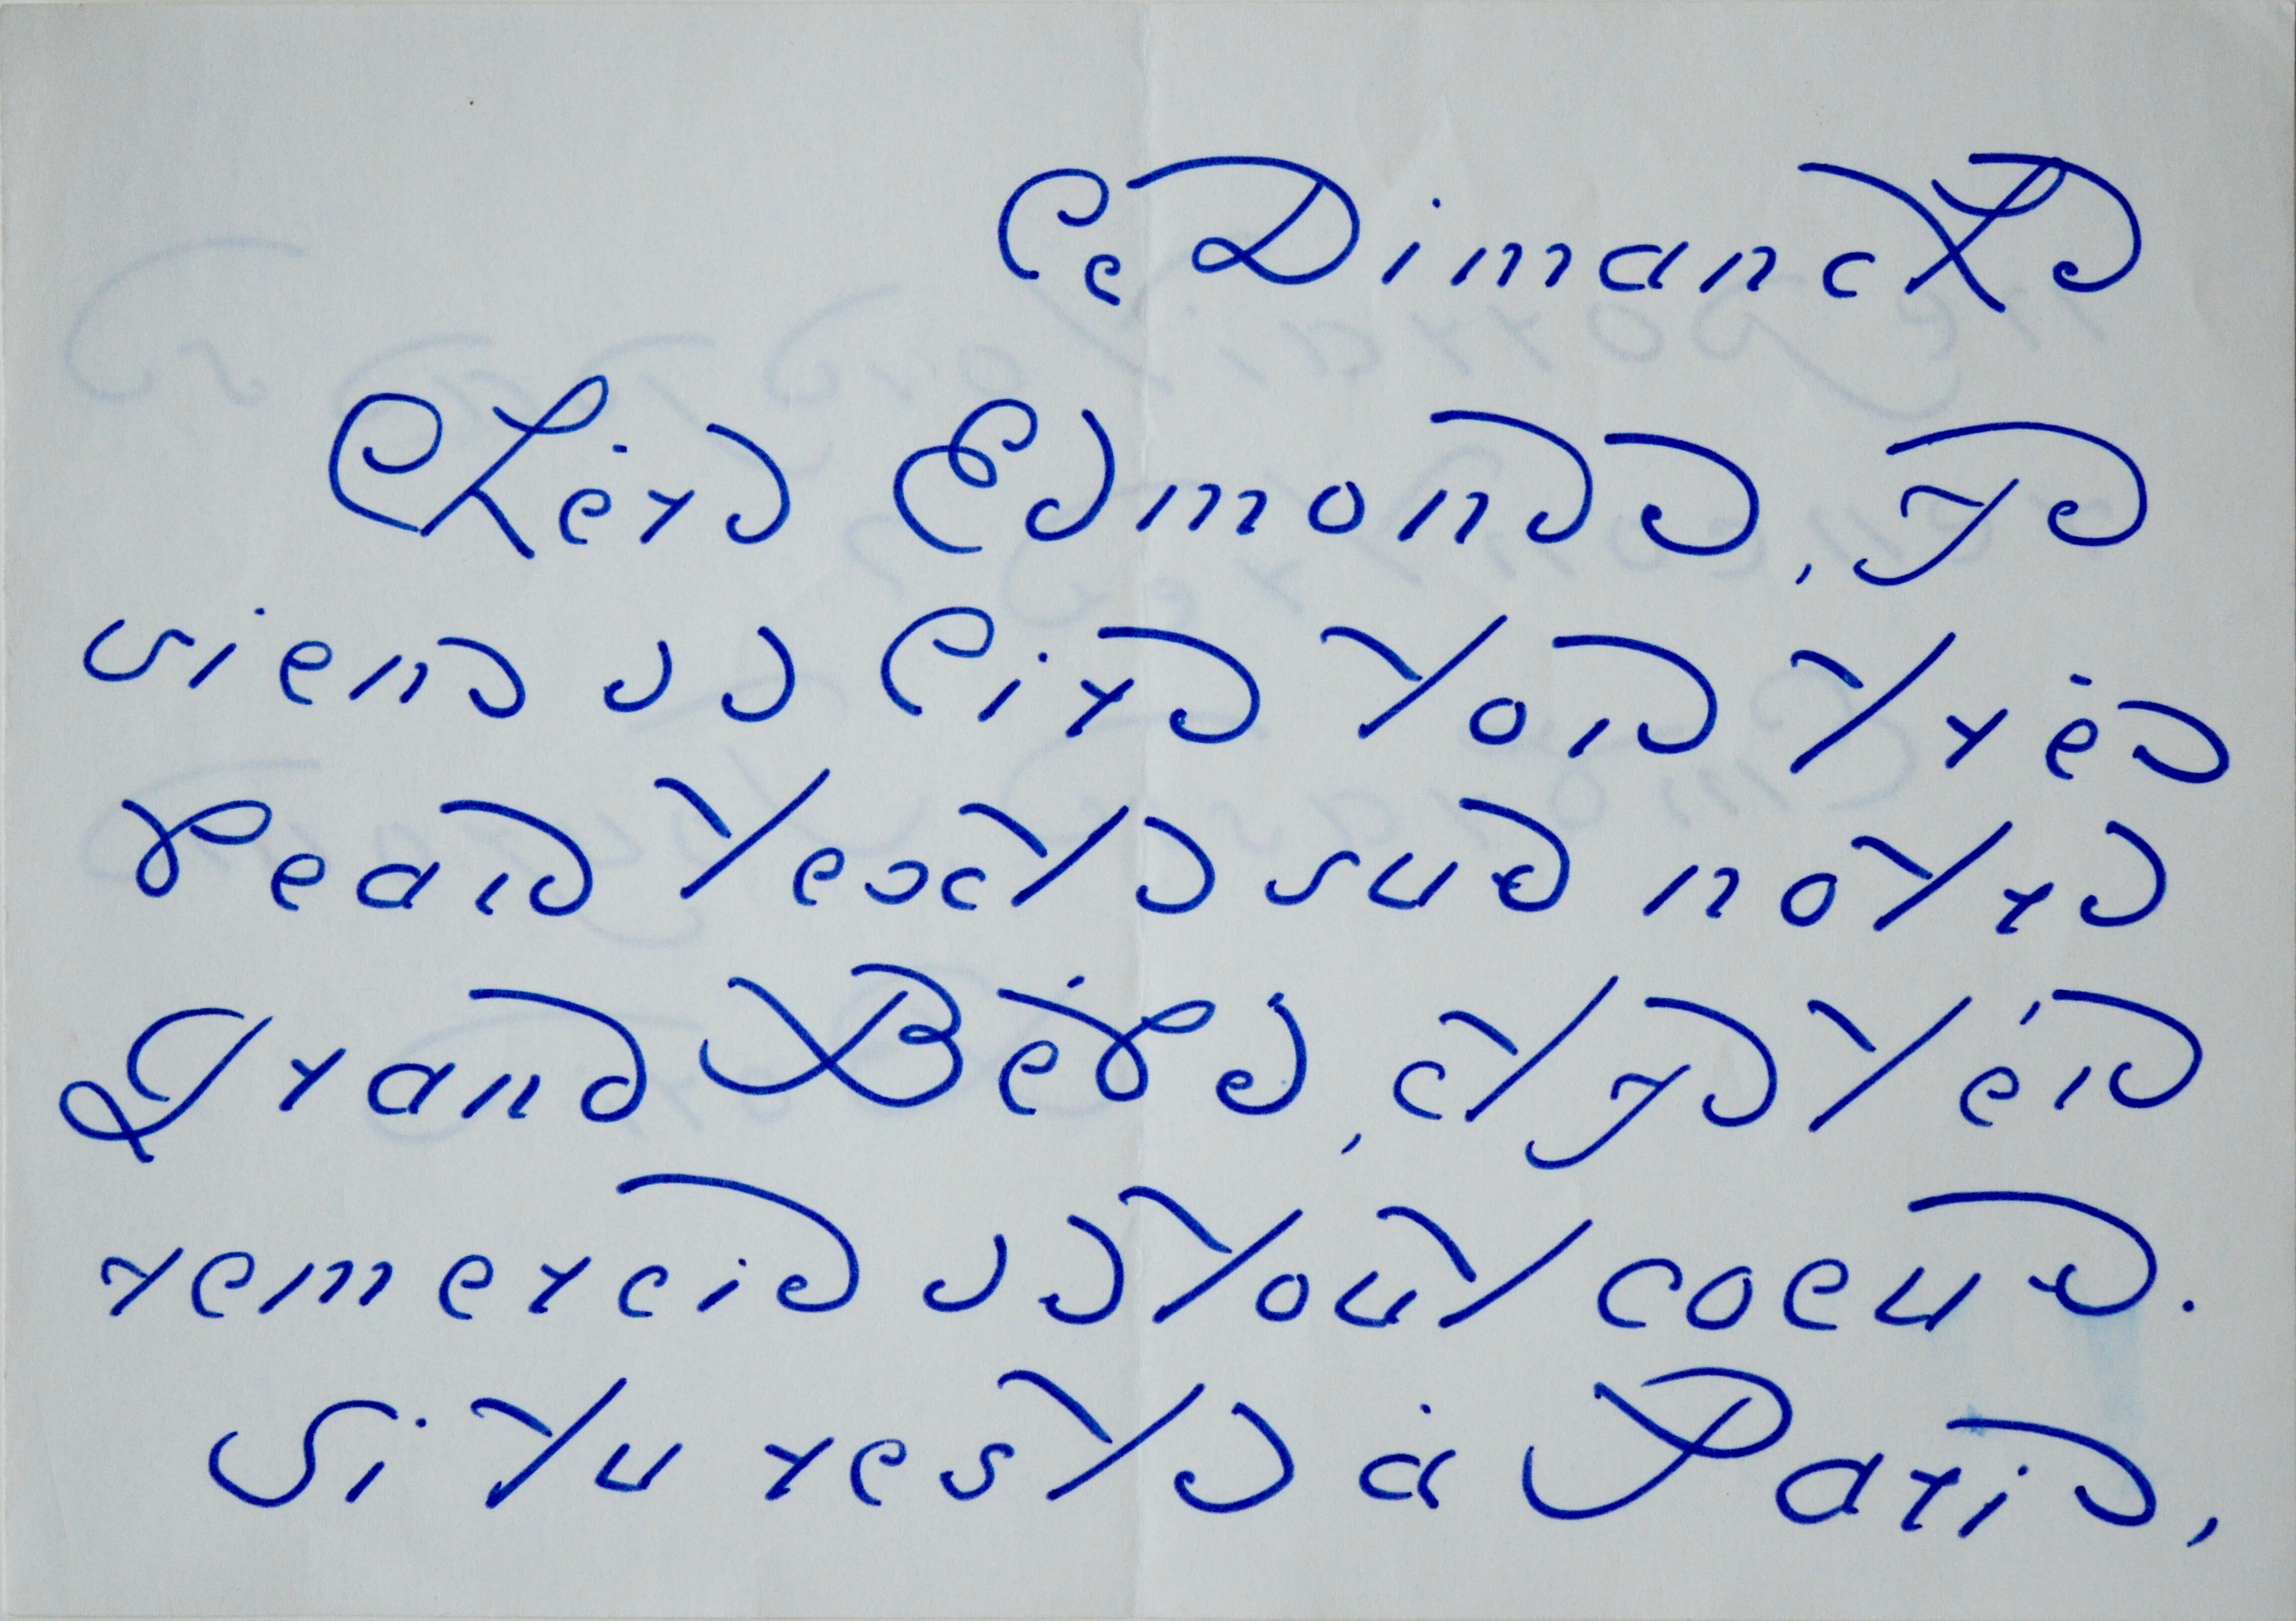 Ce Dimanche
Chère Edmonde, Je
viens de lire ton très
beau texte sur notre
Grand Bébé, et je t'en
remercie de tout coeur.
Si tu restes à Paris,